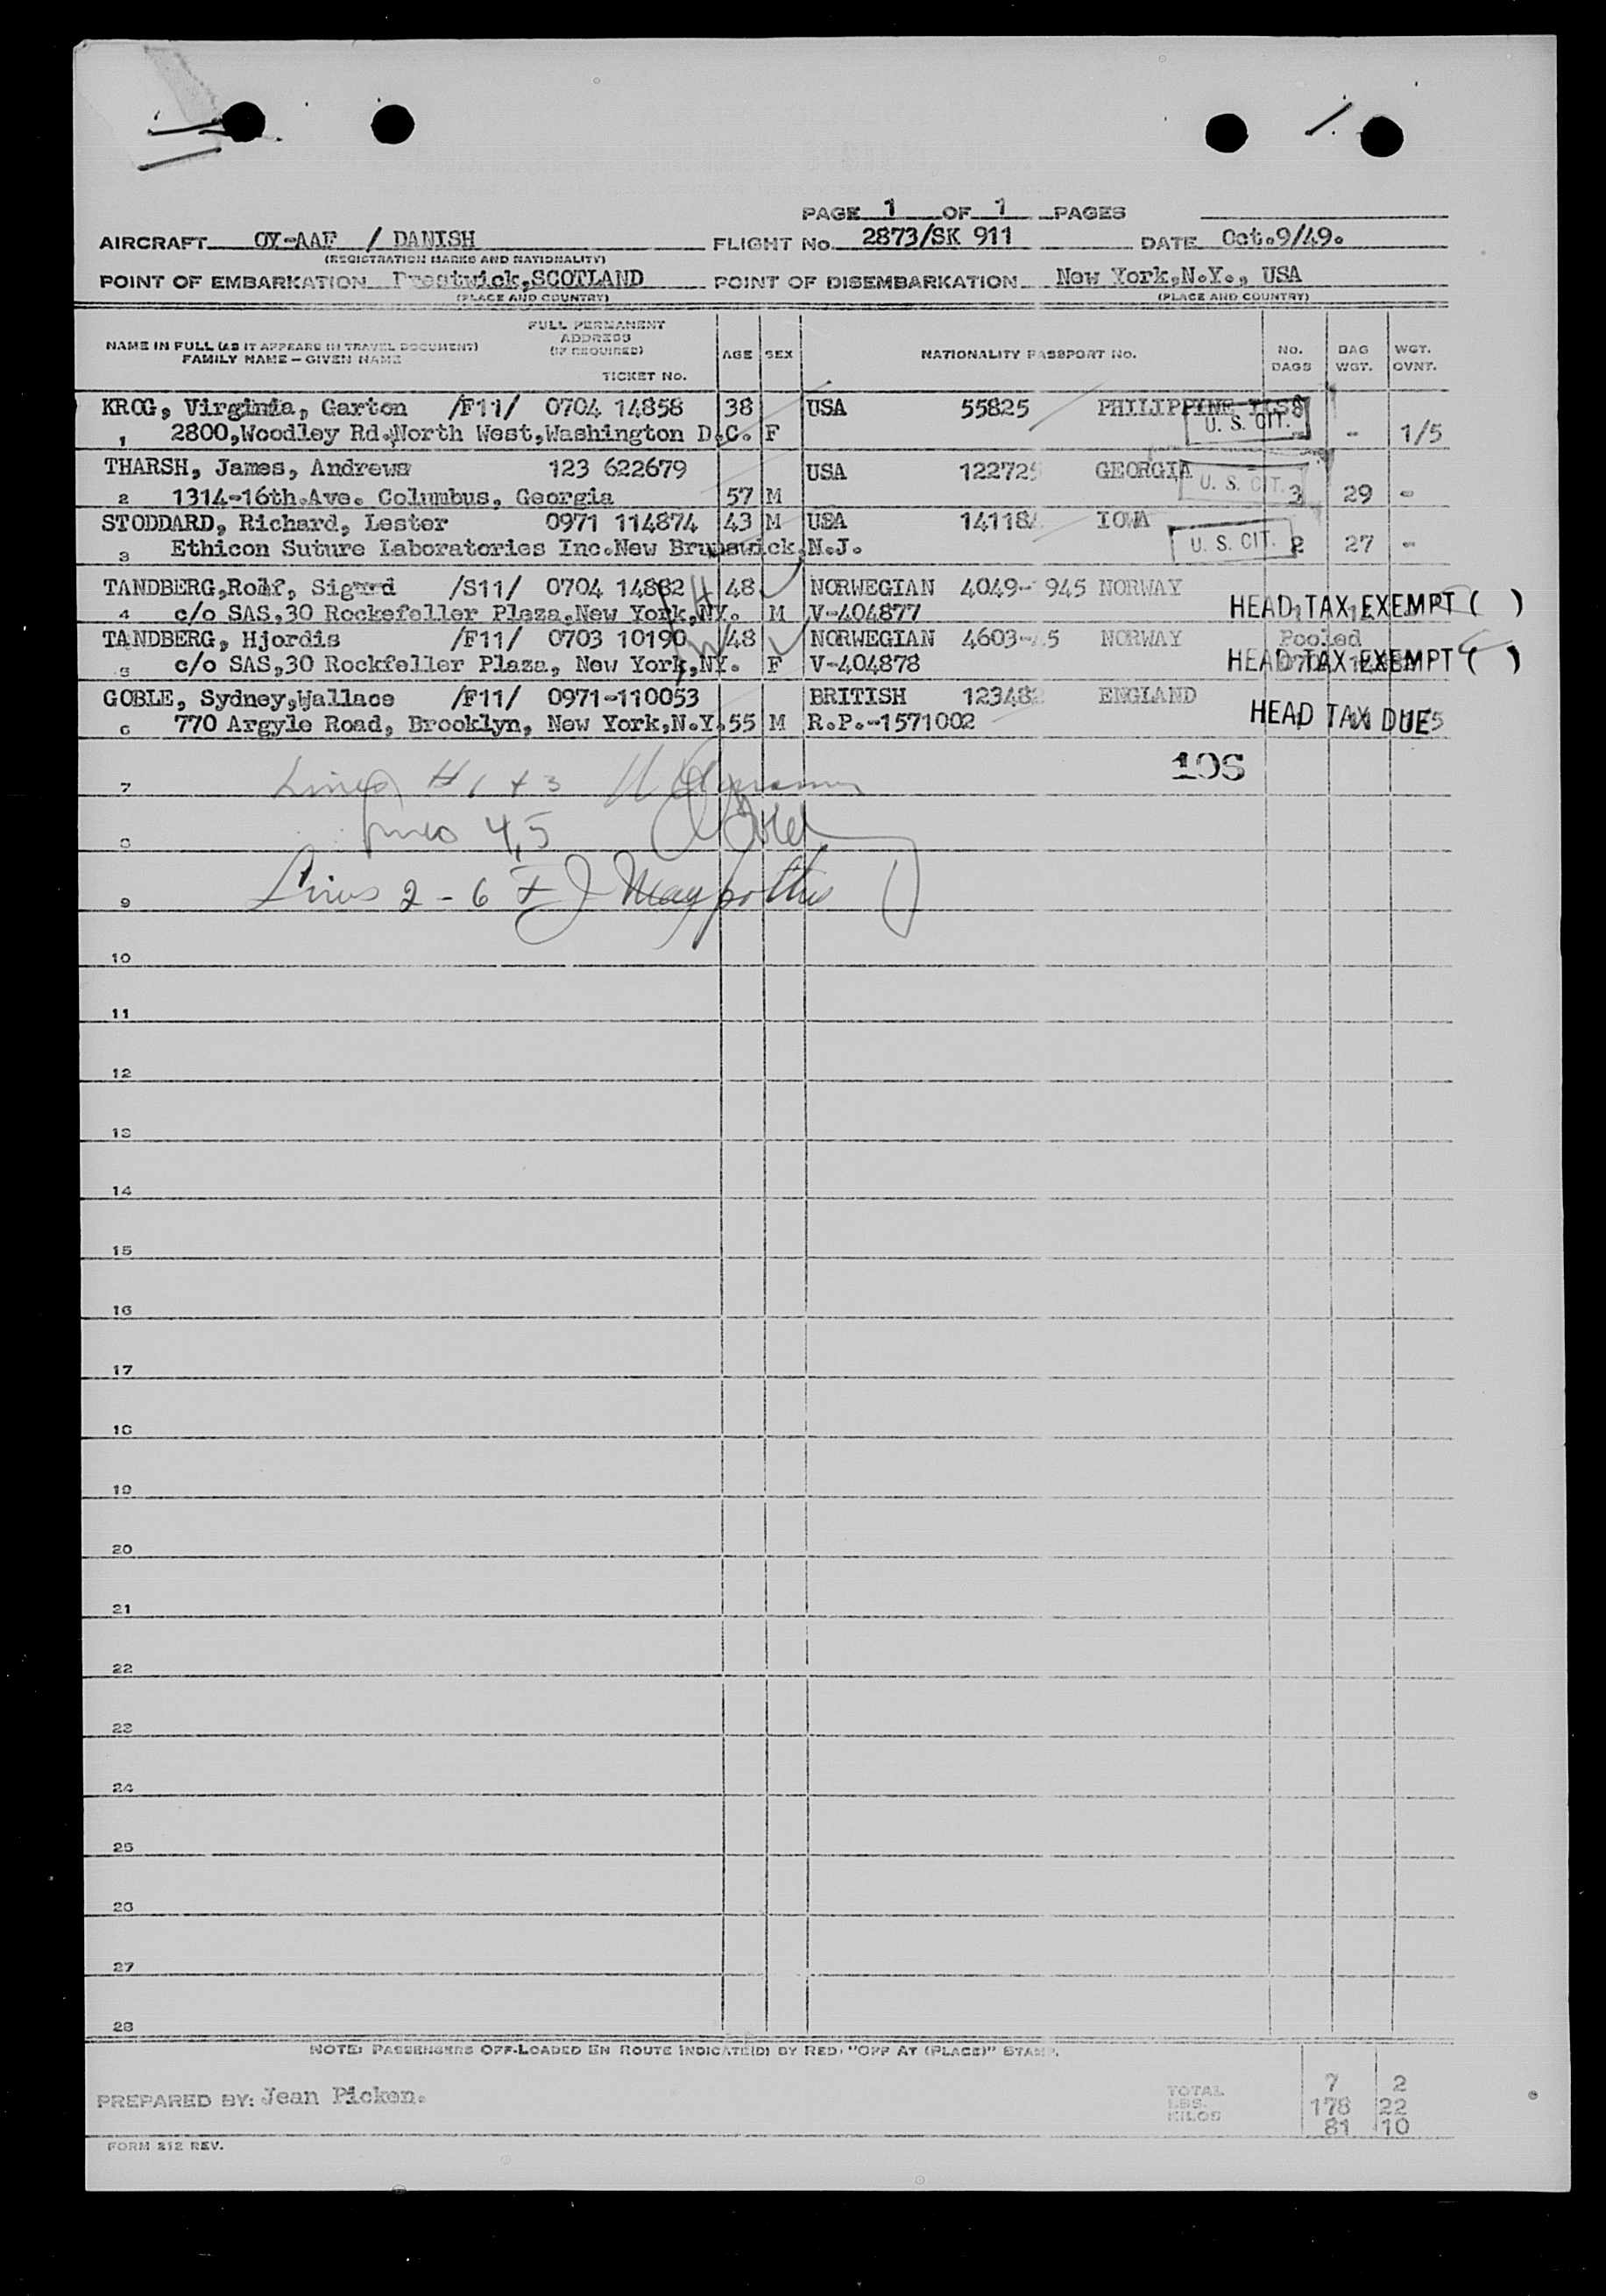 PAGE 1 OF 1 PAGES
AIRCRAFT OY-AAF / DANISH FLIGHT No. 2873/SK 911 DATE Oct.9/49.
(REGISTRATION MARKS AND NATIONALITY)
POINT OF EMBARKATION Prestwick,SCOTLAND POINT OF DISEMBARKATION New York,N.Y., USA
(PLACE AND COUNTRY) (PLACE AND COUNTRY)
NAME IN FULL (AS IT APPEARS IN TRAVEL DOCUMENT) FAMILY NAME – GIVEN NAME FULL PERMANENT ADDRESS (IF REQUIRED) TICKET No. AGE SEX NATIONALITY PASSPORT No. No. BAGS BAG WGT. WGT. OVNT.
KROG, Virginia, Garton /F11/ 0704 14858 38 USA 55825 PHILIPPINE
1 2800,Woodley Rd.North West,Washington D.C. F U. S. CIT. - 1/5
THARSH, James, Andrews 123 622679 USA 122725 GEORGIA
2 1314-16th.Ave. Columbus, Georgia 57 M U. S. CIT. 3 29 -
STODDARD, Richard, Lester 0971 114874 43 M USA 14118 IOWA
3 Ethicon Suture Laboratories Inc.New Brunswick,N.J. U. S. CIT. 2 27 -
TANDBERG,Rolf, Sigurd /S11/ 0704 14882 48 NORWEGIAN 4049- 945 NORWAY
4 c/o SAS,30 Rockefeller Plaza,New York,NY. M V-404877 HEAD TAX EXEMPT ( )
TANDBERG, Hjordis /F11/ 0703 10190 48 NORWEGIAN 4603- 5 NORWAY Pooled
5 c/o SAS,30 Rockfeller Plaza, New York,NY. F V-404878 HEAD TAX EXEMPT ( )
GOBLE, Sydney,Wallace /F11/ 0971-110053 BRITISH 12348 ENGLAND
6 770 Argyle Road, Brooklyn, New York,N.Y. 55 M R.P.-1571002 HEAD TAX DUE 5
106
7 Lines # 1 + 3
8 Lines 4,5
9 Lines 2 - 6
10
11
12
13
14
15
16
17
18
19
20
21
22
23
24
25
26
27
28
NOTE: PASSENGERS OFF-LOADED EN ROUTE INDICATE(D) BY RED "OFF AT (PLACE)" STAMP.
PREPARED BY: Jean Picken.
TOTAL 7 2
LBS. 178 22
KILOS 81 10
FORM 212 REV.